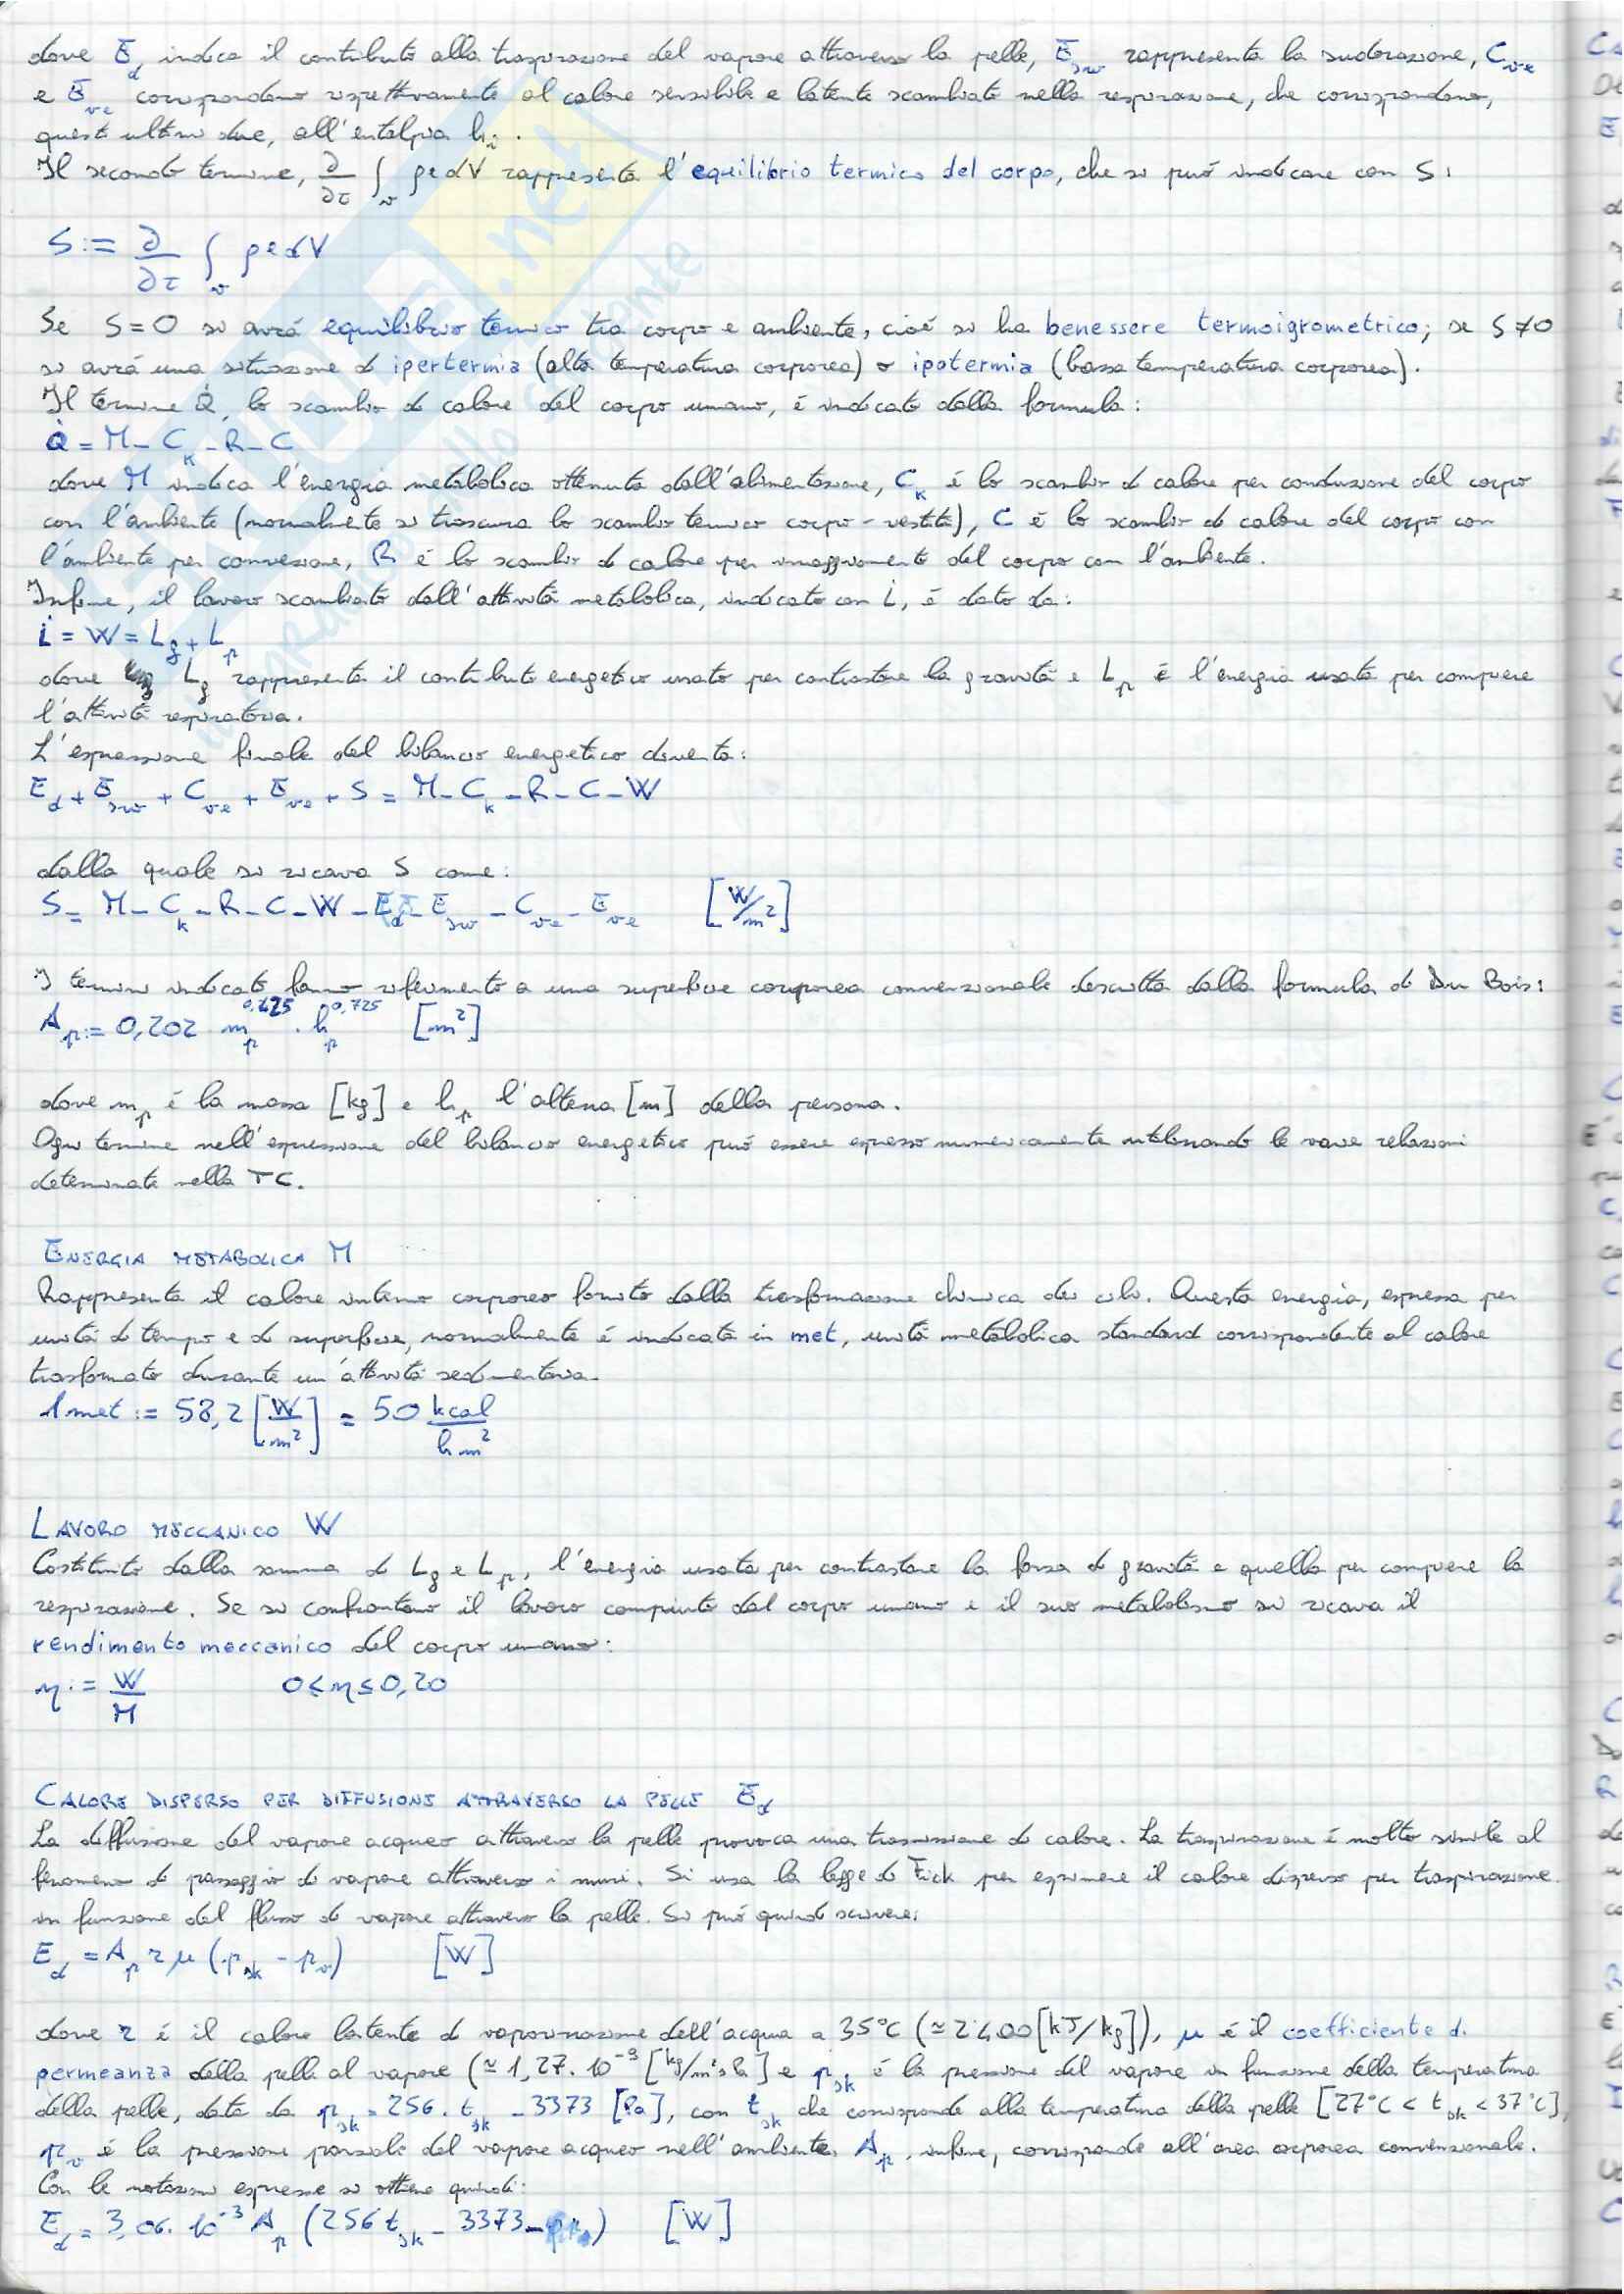 dove E_d indica il contributo alla traspirazione del vapore attraverso la pelle, E_sw rappresenta la sudorazione, C_ve
e E_ve corrispondono rispettivamente al calore sensibile e latente scambiato nella respirazione, che corrispondono,
questi ultimi due, all'entalpia h_i.
Il secondo termine, ∂/∂τ ∫_v ρedV rappresenta l'equilibrio termico del corpo, che si può indicare con S:
S := ∂/∂τ ∫_v ρedV
Se S=0 si avrá equilibrio termico tra corpo e ambiente, cioé si ha benessere termoigrometrico; se S≠0
si avrá una situazione di ipertermia (alta temperatura corporea) o ipotermia (bassa temperatura corporea).
Il termine Q̇, lo scambio di calore del corpo umano, é indicato dalla formula:
Q̇ = M - C_k - R - C
dove M indica l'energia metabolica ottenuta dall'alimentazione, C_k é lo scambio di calore per conduzione del corpo
con l'ambiente (normalmente si trascura lo scambio termico corpo-vestiti), C é lo scambio di calore del corpo con
l'ambiente per convezione, R é lo scambio di calore per irraggiamento del corpo con l'ambiente.
Infine, il lavoro scambiato dall'attivitá metabolica, indicato con L̇, é dato da:
L̇ = W = L_g + L_p
dove L_g rappresenta il contributo energetico usato per contrastare la gravitá e L_p é l'energia usata per compiere
l'attivitá respiratoria.
L'espressione finale del bilancio energetico diventa:
E_d + E_sw + C_ve + E_ve + S = M - C_k - R - C - W
dalla quale si ricava S come:
S = M - C_k - R - C - W - E_d - E_sw - C_ve - E_ve [W/m²]
I termini indicati fanno riferimento a una superficie corporea convenzionale descritta dalla formula di Du Bois:
A_p := 0,202 m_p^0,425 · h_p^0,725 [m²]
dove m_p é la massa [kg] e h_p l'altezza [m] della persona.
Ogni termine nell'espressione del bilancio energetico puó essere espresso numericamente utilizzando le varie relazioni
determinate nella TC.
ENERGIA METABOLICA M
Rappresenta il calore interno corporeo fornito dalla trasformazione chimica dei cibi. Questa energia, espressa per
unitá di tempo e di superficie, normalmente é indicata in met, unitá metabolica standard corrispondente al calore
trasformato durante un'attivitá sedentaria.
1 met := 58,2 [W/m²] = 50 kcal/hm²
LAVORO MECCANICO W
Costituito dalla somma di L_g e L_p, l'energia usata per contrastare la forza di gravitá e quella per compiere la
respirazione. Se si confrontano il lavoro compiuto dal corpo umano e il suo metabolismo si ricava il
rendimento meccanico del corpo umano:
η := W/M 0≤η≤0,20
CALORE DISPERSO PER DIFFUSIONE ATTRAVERSO LA PELLE E_d
La diffusione del vapore acqueo attraverso la pelle provoca una trasmissione di calore. La traspirazione é molto simile al
fenomeno di passaggio di vapore attraverso i muri. Si usa la legge di Fick per esprimere il calore disperso per traspirazione
in funzione del flusso di vapore attraverso la pelle. Si puó quindi scrivere:
E_d = A_p r μ (p_sk - p_v) [W]
dove r é il calore latente di vaporizzazione dell'acqua a 35°C (≃2400[kJ/kg]), μ é il coefficiente di
permeanza della pelle al vapore (≃1,27·10^-9 [kg/m²sPa] e p_sk é la pressione del vapore in funzione della temperatura
della pelle, data da p_sk = 256·t_sk - 3373 [Pa], con t_sk che corrisponde alla temperatura della pelle [27°C < t_sk < 37°C],
p_v é la pressione parziale del vapore acqueo nell'ambiente, A_p, infine, corrisponde all'area corporea convenzionale.
Con le notazioni espresse si ottiene quindi:
E_d = 3,06·10^-3 A_p (256 t_sk - 3373 - p_v) [W]